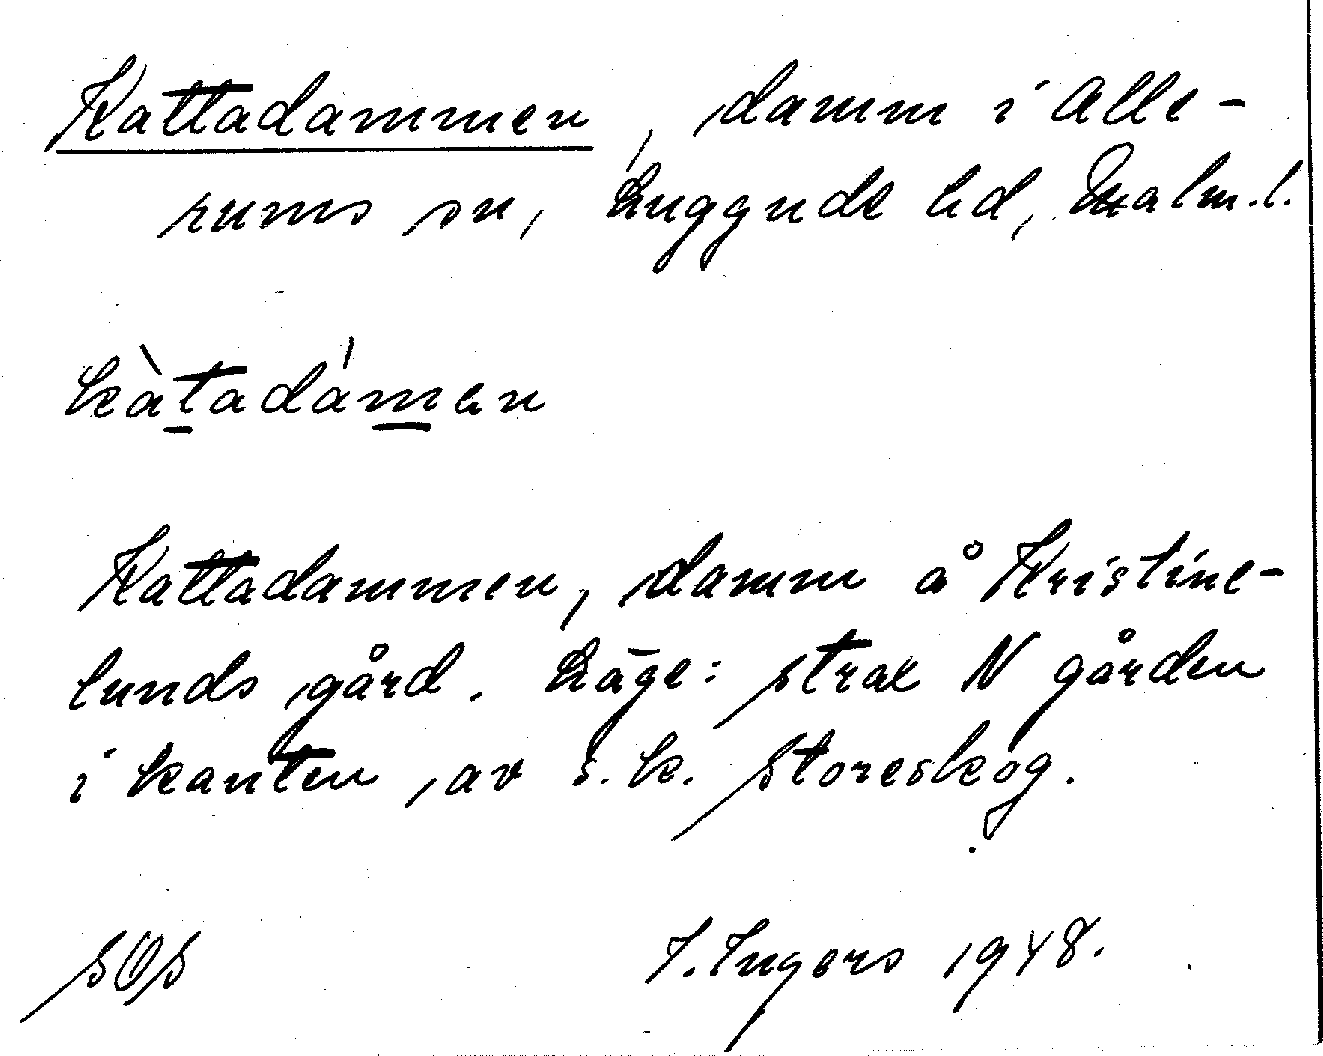 Kattadammen, damm i Alle-
rums sn, Luggude hd, Malm.l.
kàtadámen
Kattadammen, damm å Kristine-
lunds gård. Läge: strax N gården
i kanten av s.k. Storeskog.
SOS I. Ingers 1948.